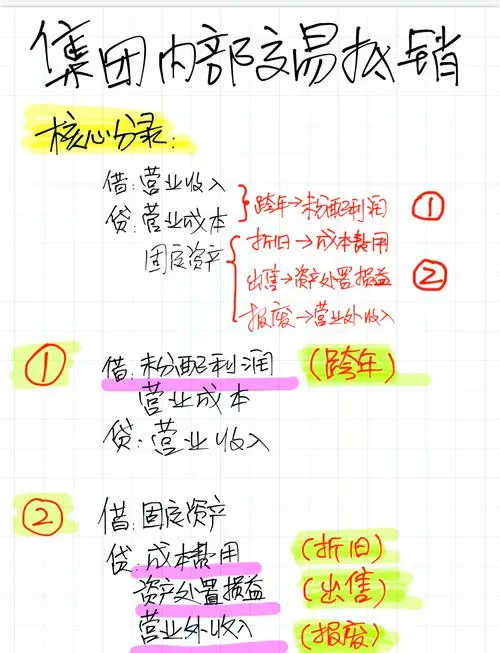 集团内部交易抵销
核心分录:
借:营业收入
贷:营业成本
固定资产
跨年→未分配利润 ①
折旧→成本费用
出售→资产处置损益 ②
报废→营业外收入
① 借:未分配利润 (跨年)
营业成本
贷:营业收入
② 借:固定资产
贷:成本费用 (折旧)
资产处置损益 (出售)
营业外收入 (报废)